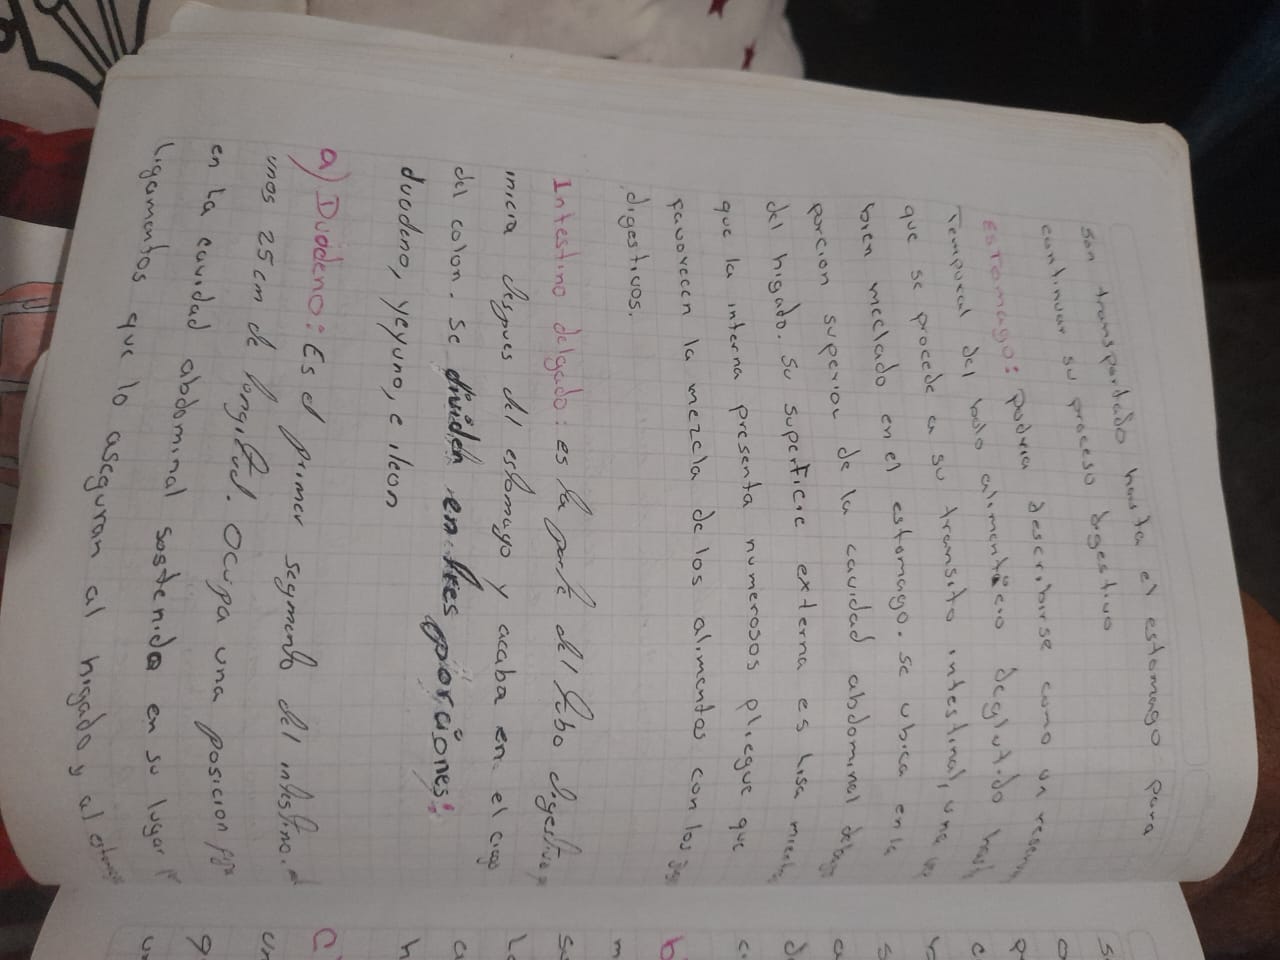 son transportado hasta el estomago para
continuar su proceso digestivo
Estomago: podria describirse como un
Temporal del bolo alimenticio deglutido
que se procede a su transito intestinal, una
bien mezclado en el estomago. se ubica en la
porcion superior de la cavidad abdominal
del higado. Su superficie externa es lisa
que la interna presenta numerosos pliegue que
favorecen la mezcla de los alimentos con los
digestivos.
Intestino delgado: es la parte del tubo
inicia despues del estomago y acaba en el
del colon. Se dividen en tres porciones:
duodeno, yeyuno, e ileon
a) Duodeno: Es el primer segmento del
unos 25 cm de longitud. Ocupa una posicion
en la cavidad abdominal sostenida en su lugar
ligamentos que lo aseguran al higado y al